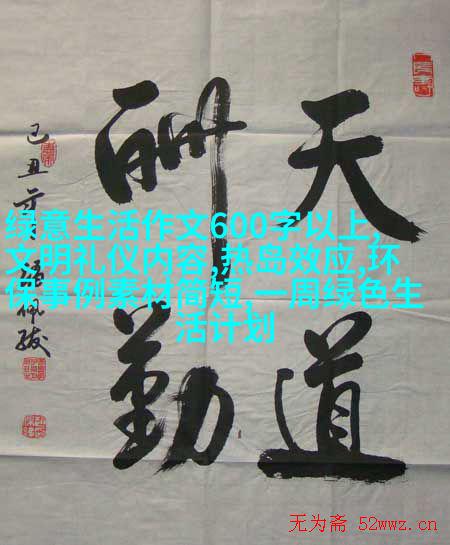 天道
酬勤
己丑
绿意生活作文600字以上,
文明礼仪内容,热岛效应,环
保事例素材简短,一周绿色生
活计划
无为斋 52wwz.cn